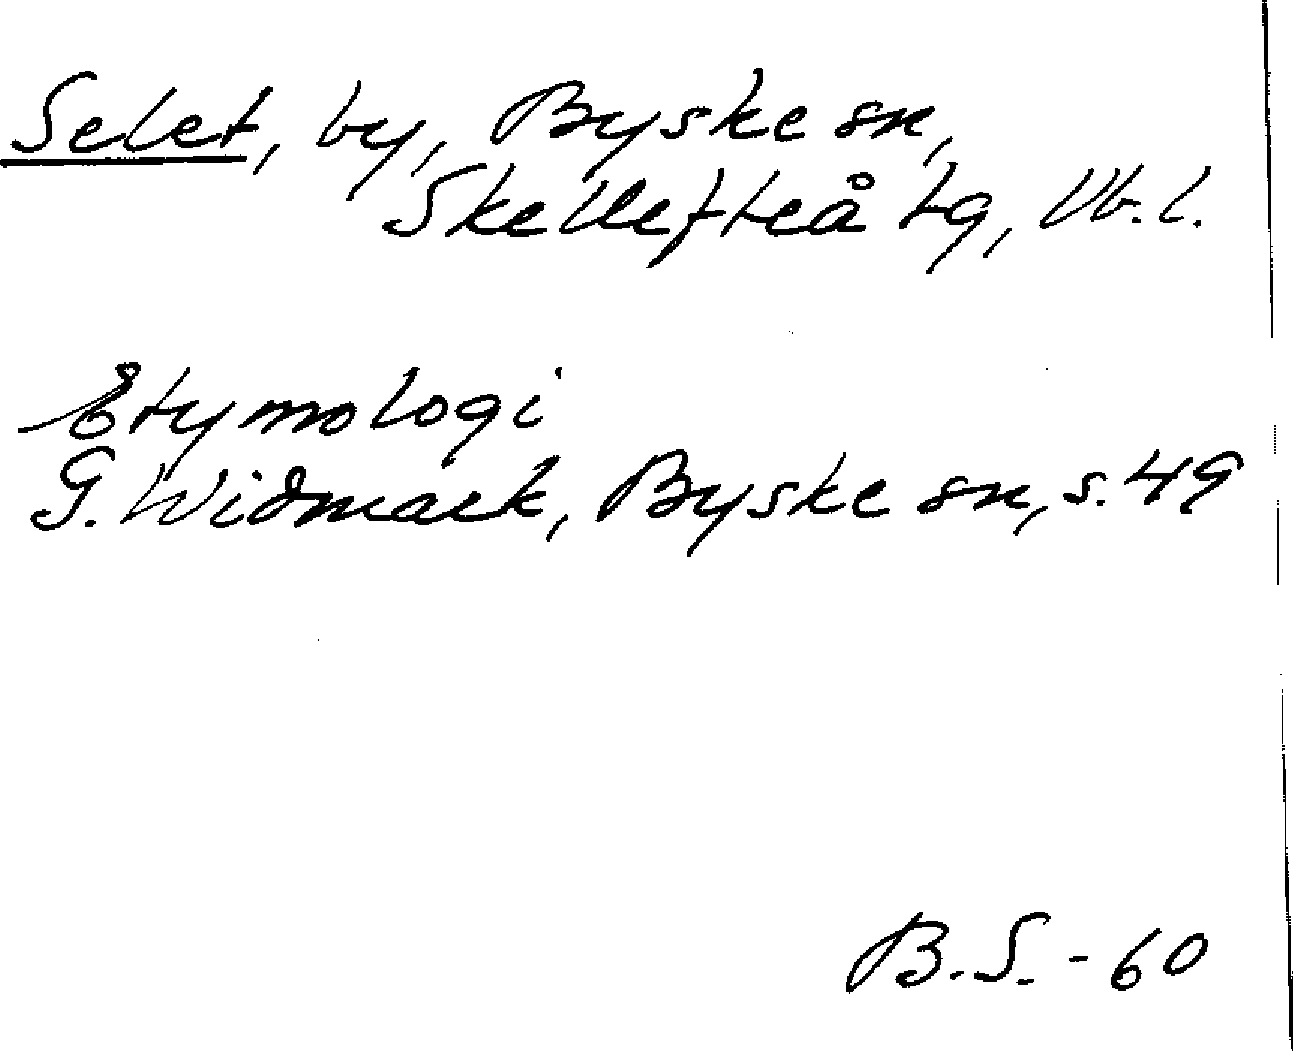 Selet, by, Byske sn,
Skellefteå tg, Vb. l.
Etymologi
G. Widmark, Byske sn, s. 49
B.S. - 60